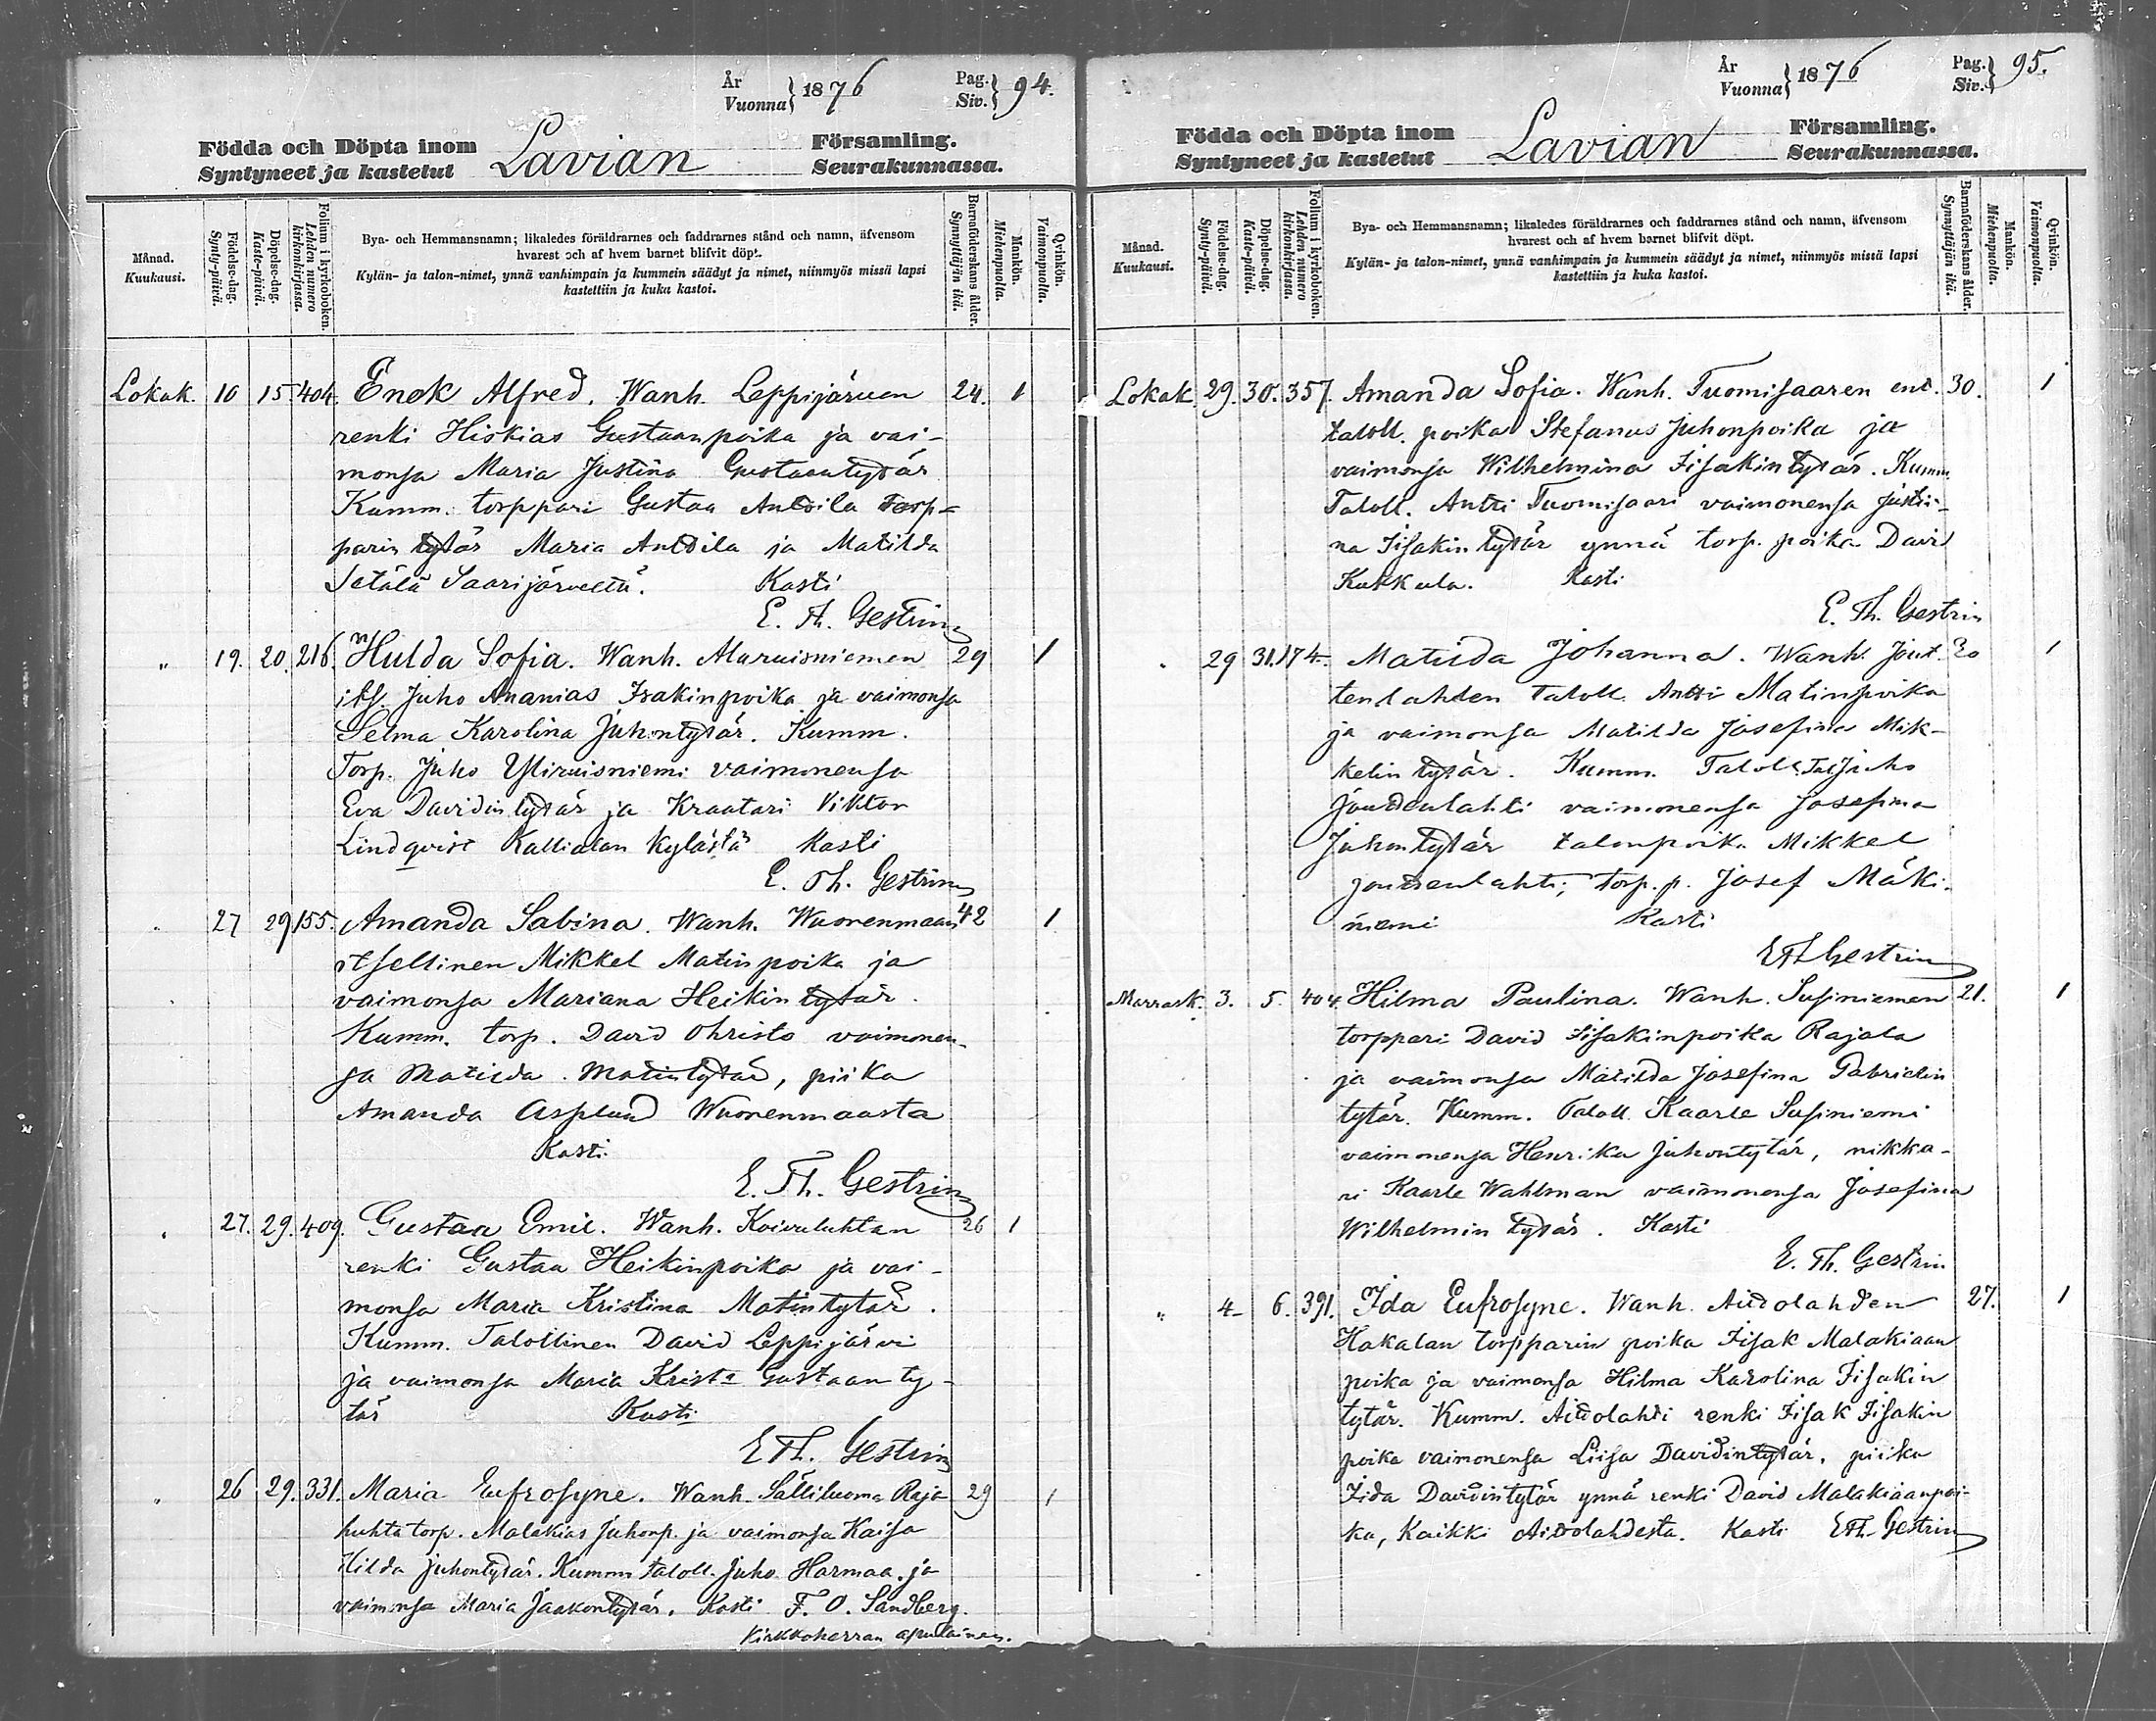 År
Vuonna } 1876
Pag.
Siv. } 94.
Födda och Döpta inom
Syntyneet ja kastetut
Lavian
Församling.
Seurakunnassa.
Månad.
Kuukausi.
Födelse-dag.
Synty-päivä.
Döpelse-dag.
Kaste-päivä.
Folium i kyrkoboken.
Lehden numero
kirkonkirjassa.
Bya- och Hemmansnamn; likaledes föräldrarnes och faddrarnes stånd och namn, äfvensom
hvarest och af hvem barnet blifvit döpt.
Kylän- ja talon-nimet, ynnä vanhimpain ja kummein säädyt ja nimet, niinmyös missä lapsi
kastettiin ja kuka kastoi.
Barnaföderskans ålder.
Synnyttäjän ikä.
Mankön.
Miehenpuolta.
Qvinkön.
Vaimonpuolta.
Lokak. 10 15. 404. Enok Alfred. Wanh. Leppijärven 24. 1
renki Hiskias Gustaanpoika ja vai-
monsa Maria Justina Gustaantytär
Kumm. torppari Gustaa Anttila torp-
parin tytär Maria Anttila ja Matilda
Setälä Saarijärveltä. Kasti
E. Th. Gestrin
" 19. 20. 216. Hulda Sofia. Wanh. Alaruisniemen 29 1
its. Juho Ananias Isakinpoika ja vaimonsa
Selma Karolina Juhontytär. Kumm.
Torp. Juho Yliruisniemi vaimonensa
Eva Davidintytär ja Kraatari Viktor
Lindqvist Kallialan kylästä Kasti
E. Th. Gestrin
" 27 29 155. Amanda Sabina. Wanh. Wuorenmaan 42 1
itsellinen Mikkel Matinpoika ja
vaimonsa Mariana Heikintytär.
Kumm. torp. David Ohristo vaimonen-
sa Matilda Matintytär, piika
Amanda Asplund Wuorenmaasta
Kasti
E. Th. Gestrin
" 27. 29. 409. Gustaa Emil. Wanh. Koivuluhtan 26 1
renki Gustaa Heikinpoika ja vai-
monsa Maria Kristina Matintytär.
Kumm. Talollinen David Leppijärvi
ja vaimonsa Maria Krist:a Gustaanty-
tär Kasti
E Th. Gestrin
" 26 29. 331. Maria Eufrosyne. Wanh. Sälliluoma Raja 29 1
huhta torp. Malakias Juhonp. ja vaimonsa Kaisa
Hilda Juhontytär. Kumm taloll. Juho Harmaa ja
vaimonsa Maria Jaakontytär. Kasti F. O. Sandberg.
Kirkkoherran apulainen.
År
Vuonna } 1876
Pag.
Siv. } 95.
Födda och Döpta inom
Syntyneet ja kastetut
Lavian
Församling.
Seurakunnassa.
Månad.
Kuukausi.
Födelse-dag.
Synty-päivä.
Döpelse-dag.
Kaste-päivä.
Folium i kyrkoboken.
Lehden numero
kirkonkirjassa.
Bya- och Hemmansnamn; likaledes föräldrarnes och faddrarnes stånd och namn, äfvensom
hvarest och af hvem barnet blifvit döpt.
Kylän- ja talon-nimet, ynnä vanhimpain ja kummein säädyt ja nimet, niinmyös missä lapsi
kastettiin ja kuka kastoi.
Barnaföderskans ålder.
Synnyttäjän ikä.
Mankön.
Miehenpuolta.
Qvinkön.
Vaimonpuolta.
Lokak. 29. 30. 357. Amanda Sofia. Wanh. Tuomisaaren ent. 30. 1
taloll. poika Stefanus Juhonpoika ja
vaimonsa Wilhelmina Iisakintytär. Kumm.
Taloll. Antti Tuomisaari vaimonensa Justii-
na Iisakintytär ynnä torp. poika David
Kukkula. Kasti
E. Th. Gestrin
" 29 31. 174. Matilda Johanna. Wanh. Jout- 20 1
tenlahden Taloll. Antti Matinpoika
ja vaimonsa Matilda Josefina Mik-
kelintytär. Kumm. Taloll. Juho
Joutenlahti vaimonensa Josefina
Juhontytär talonpoika Mikkel
Joutsenlahti, torp. p. Josef Mäki-
niemi Kasti
E Th Gestrin
Marrask. 3. 5. 404. Hilma Paulina. Wanh. Susiniemen 21. 1
torppari David Iisakinpoika Rajala
ja vaimonsa Matilda Josefina Gabrielin
tytär. Kumm. Taloll. Kaarle Susiniemi
vaimonensa Henrika Juhontytär, nikka-
ri Kaarle Wahlman vaimonensa Josefina
Wilhelmintytär. Kasti
E. Th. Gestrin
" 4. 6. 391. Ida Eufrosyne. Wanh. Aittolahden 27. 1
Hakalan torpparin poika Iisak Malakiaan
poika ja vaimonsa Hilma Karolina Iisakin
tytär. Kumm. Aittolahti renki Iisak Iisakin
poika vaimonensa Liisa Davidintytär, piika
Iida Davidintytär ynnä renki David Malakiaanpoi-
ka, Kaikki Aittolahdesta. Kasti E Th. Gestrin